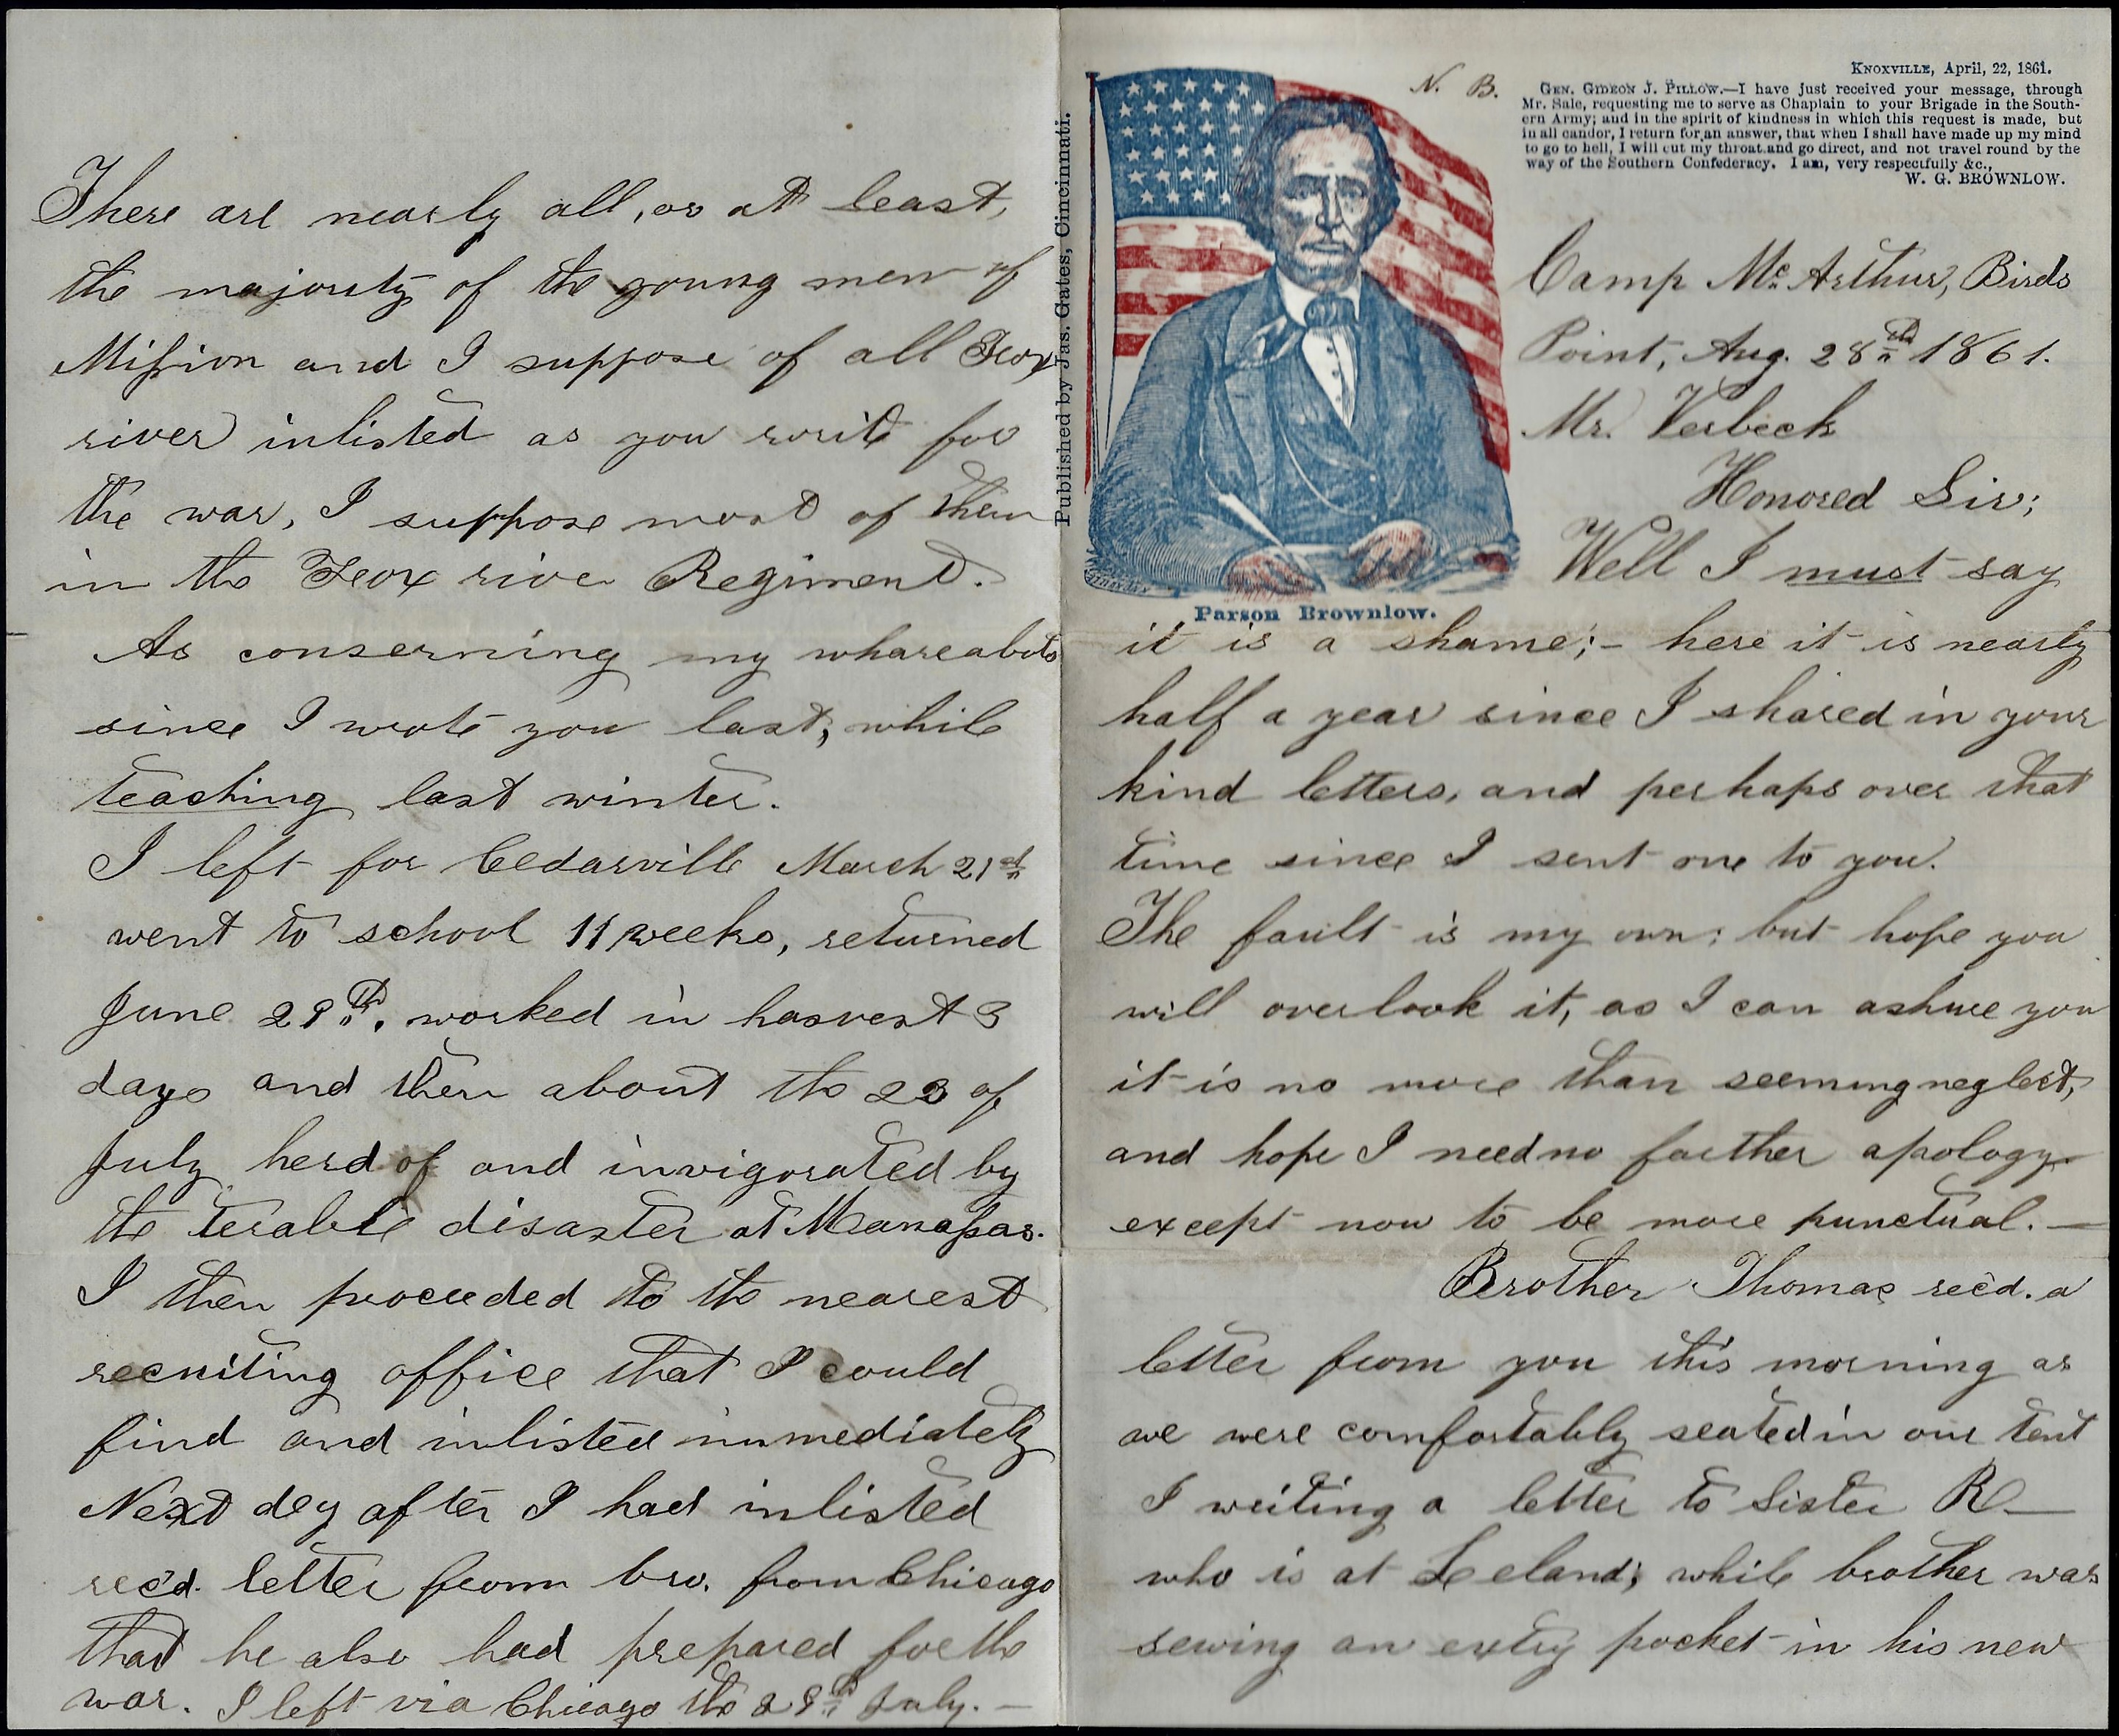 There are nearly all, or at least,
the majority of the young men of
Mission and I suppose of all Fox
river inlisted as you write for
the war, I suppose most of them
in the Fox rive Regiment.
As conserning my whareabots
since I wrote you last, while
teaching last winter.
I left for Cedarville March 21st
went to school 11 weeks, returned
June 29th, worked in harvest 3
days and then about the 23 of
July herd of and invigorated by
the terable disaster at Manassas.
I then proceeded to the nearest
recruiting office that I could
find and inlisted immediately
Next day after I had inlisted
rec'd. letter from bro. from Chicago
that he also had prepared for the
war. I left via Chicago the 29th July. —
Published by Jas. Gates, Cincinnati.
N. B.
KNOXVILLE, April, 22, 1861.
GEN. GIDEON J. PILLOW.—I have just received your message, through
Mr. Sale, requesting me to serve as Chaplain to your Brigade in the South-
ern Army; and in the spirit of kindness in which this request is made, but
in all candor, I return for an answer, that when I shall have made up my mind
to go to hell, I will cut my throat and go direct, and not travel round by the
way of the Southern Confederacy. I am, very respectfully &c.,
W. G. BROWNLOW.
Parson Brownlow.
Camp Mc Arthur, Birds
Point, Aug. 28th 1861.
Mr. Verbeck
Honored Sir;
Well I must say
it is a shame;- here it is nearly
half a year since I shared in your
kind letters, and perhaps over that
time since I sent one to you.
The fault is my own; but hope you
will overlook it, as I can ashure you
it is no more than seeming neglect,
and hope I need no farther apology
except now to be more punctual. —
Brother Thomas rec'd. a
letter from you this morning as
we were comfortably seated in our tent
I writing a letter to Sister R—
who is at Leland; while brother was
sewing an extry pocket in his new